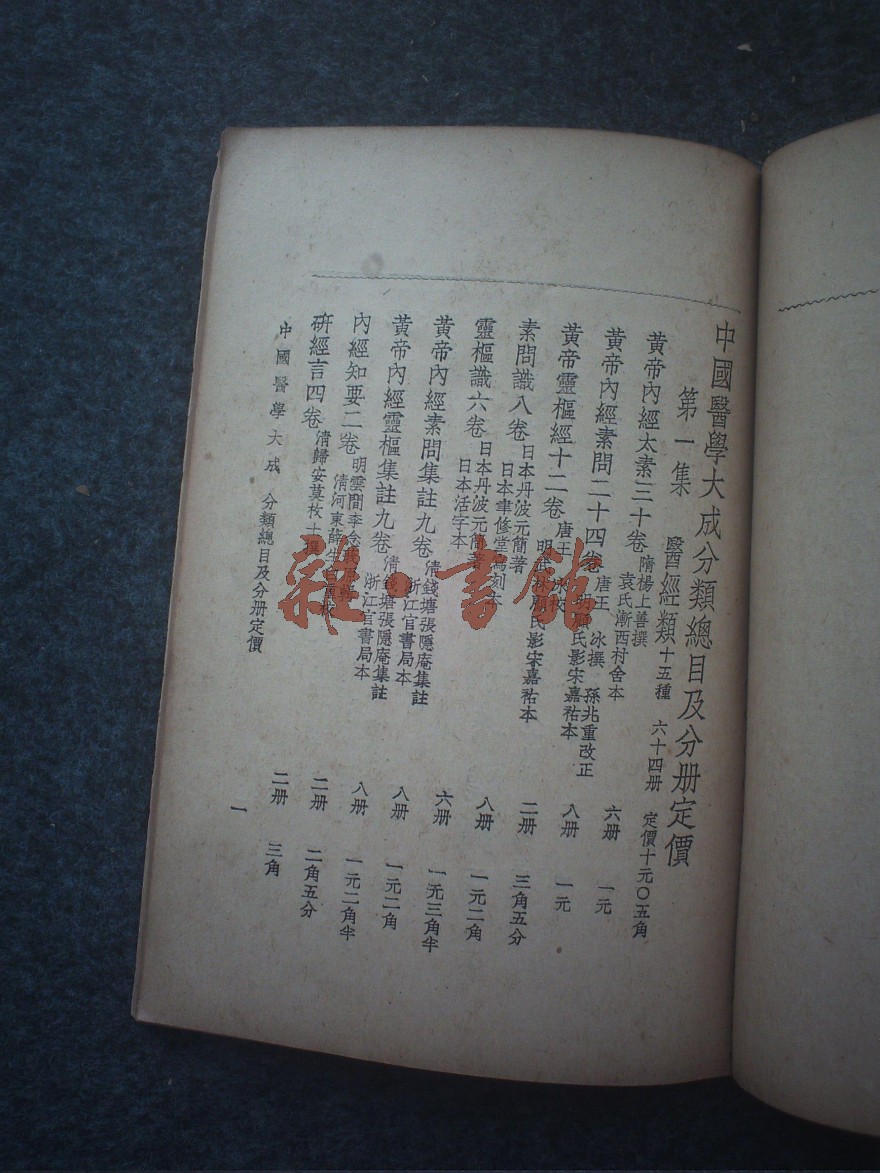 中國醫學大成分類總目及分册定價
第一集 醫經類 十五種 六十四册 定價十元〇五角
黃帝內經太素三十卷 隋楊上善撰 袁氏漸西村舍本 六册 一元
黃帝內經素問二十四卷 唐王冰撰 孫兆重改正 明顧氏影宋嘉祐本 八册 一元
黃帝靈樞經十二卷 唐王 校 明武林顧氏影宋嘉祐本 二册 三角五分
素問識八卷 日本丹波元簡著 日本聿修堂寫刻本 八册 一元二角
靈樞識六卷 日本丹波元簡著 日本活字本 六册 一元三角半
黃帝內經素問集註九卷 清錢塘張隱庵集註 浙江官書局本 八册 一元二角
黃帝內經靈樞集註九卷 清錢塘張隱庵集註 浙江官書局本 八册 一元二角半
內經知要二卷 明雲間李念莪 輯 清河東薛生白 校 二册 二角五分
研經言四卷 清歸安莫枚士撰 二册 三角
中國醫學大成 分類總目及分册定價 一
雜·書館